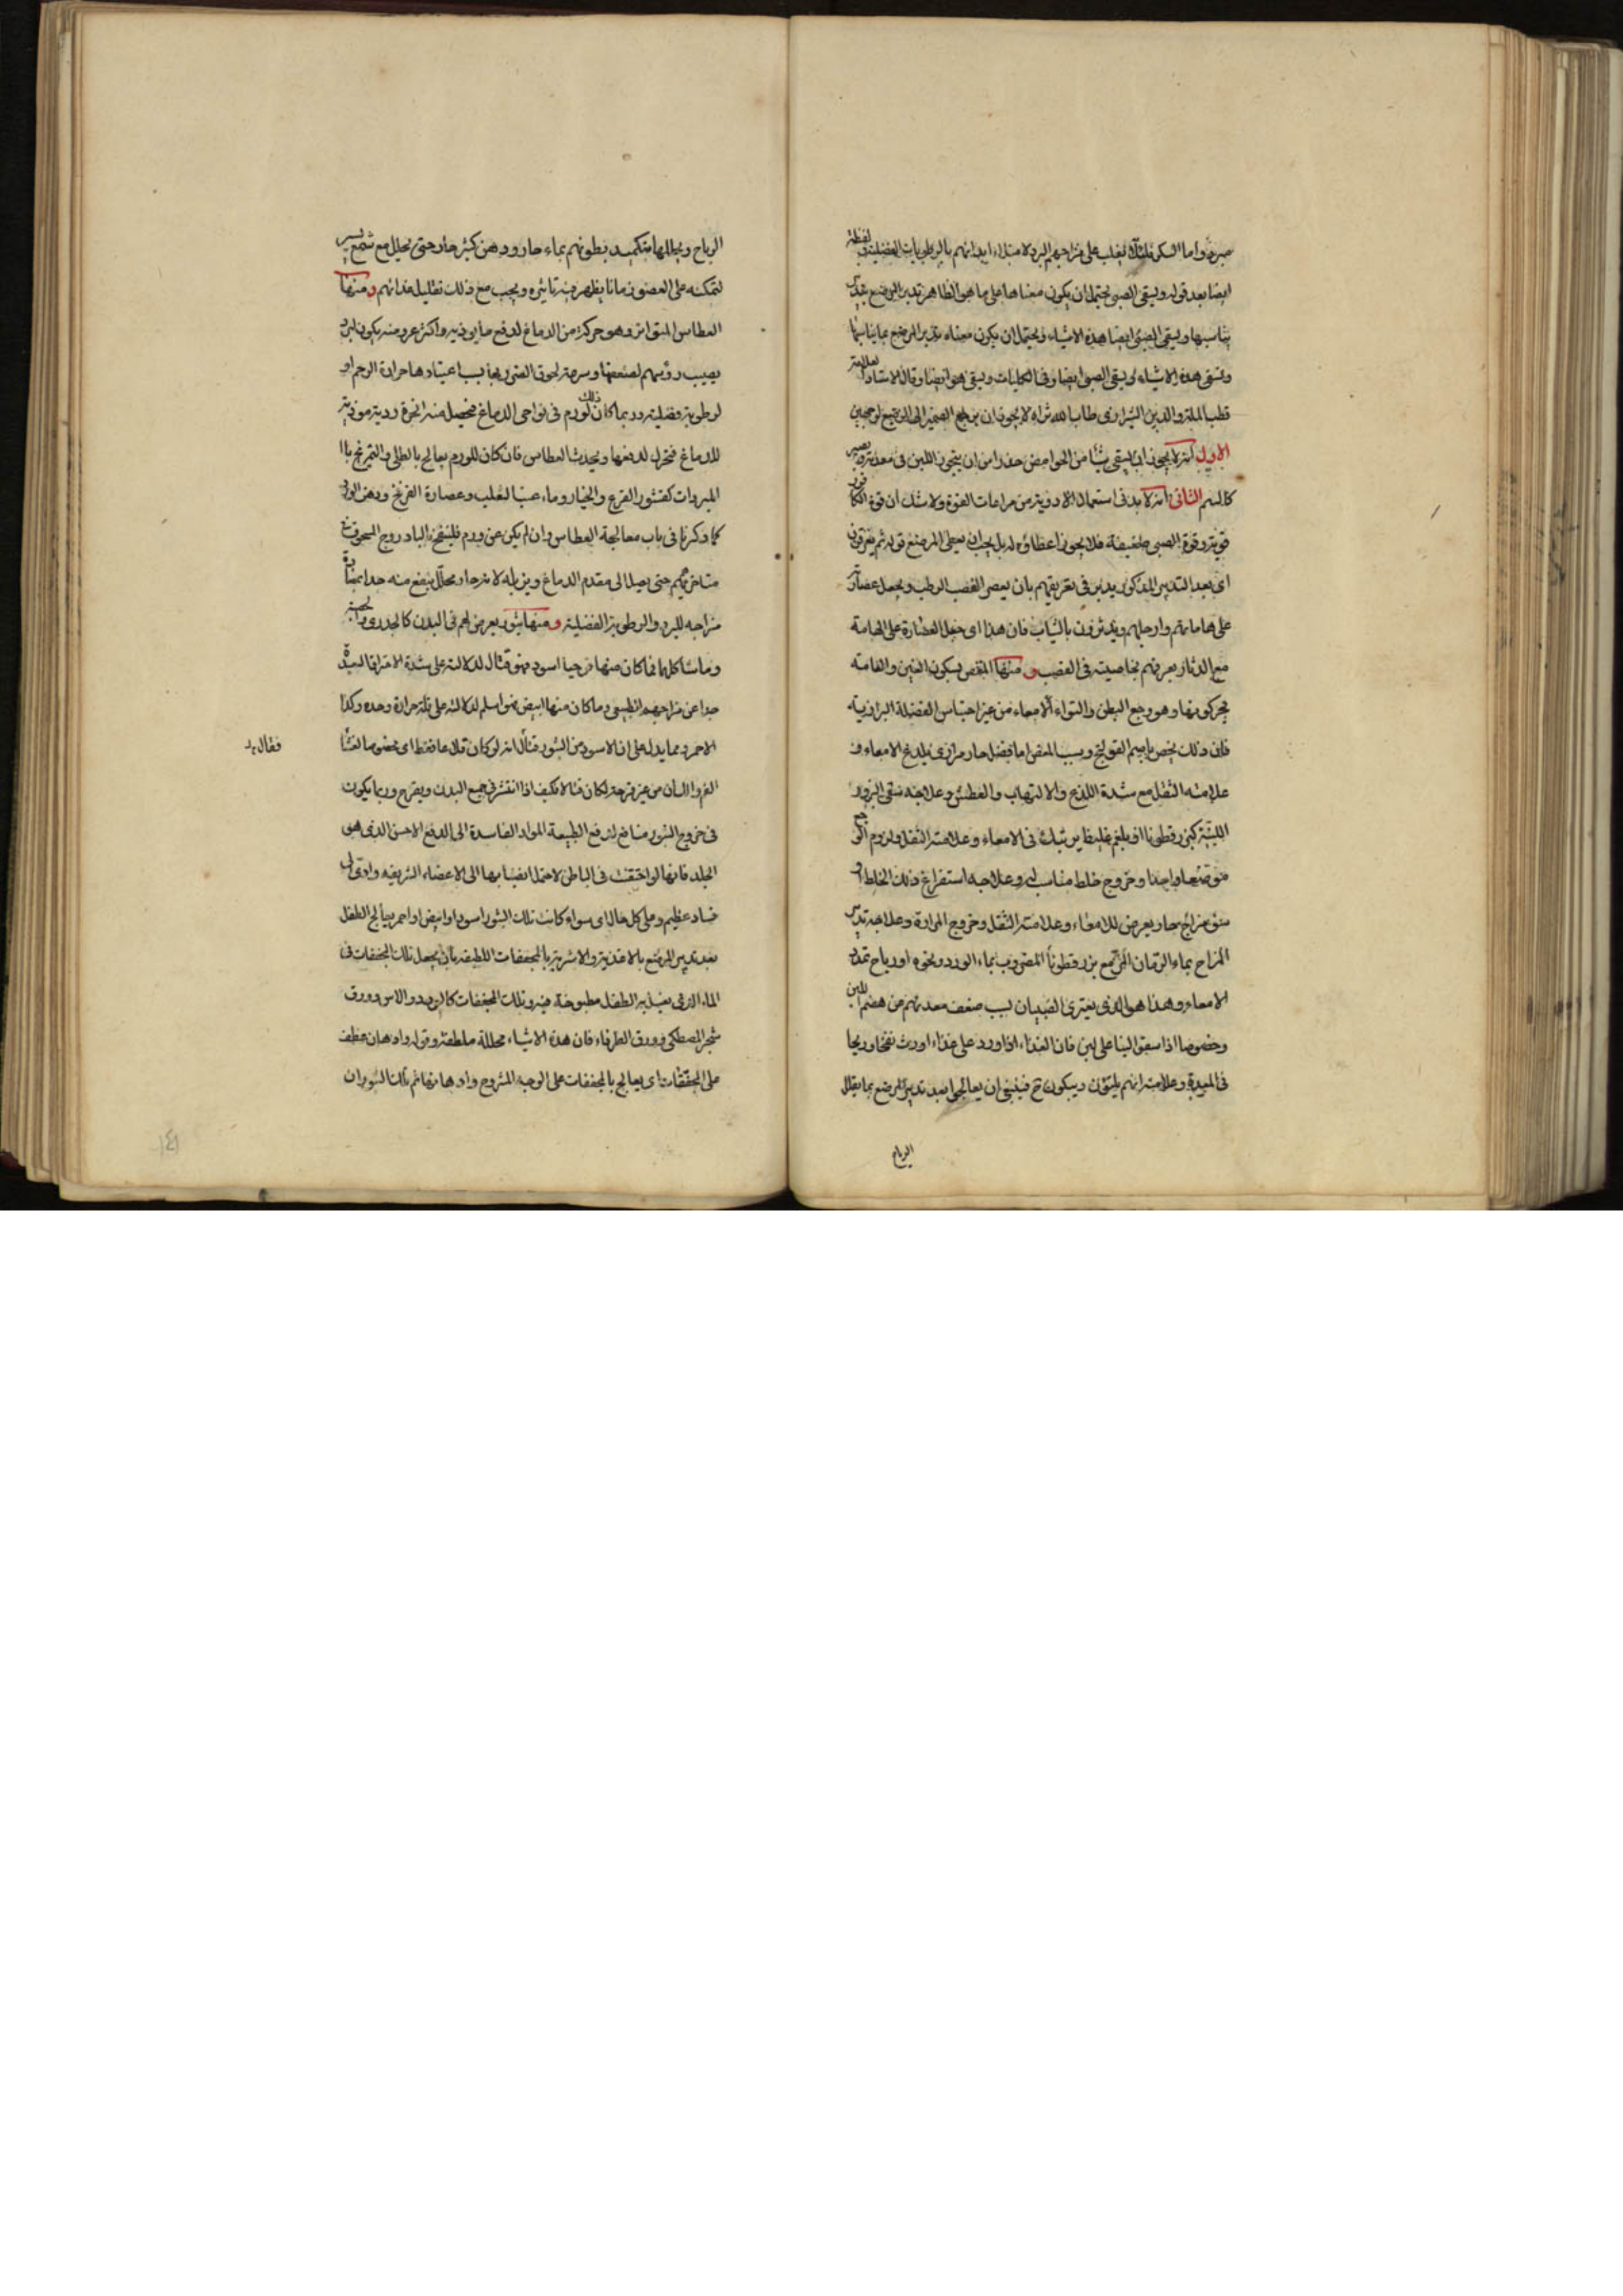 مبرد واما السكر فلئلا يغلب على مزاجهم البرد لامتلاء ابدانهم بالرطوبات الفضلية ولفظة
ايضا بعد قوله ويسقى الصبى يحتمل ان يكون معناها على ما هو الظاهر تدبير المرضع بتدبير
يناسبها ويسقى الصبى ايضا هذه الاشياء ويحتمل ان يكون معناه تدبير المرضع بما يناسبها
وتسقى هذه الاشياء ويسقى الصبى ايضا وفى الكليات ويسقى هو ايضا وقال الاستاد العلامة
قطب الملة والدين الشيرازى طاب الله ثراه لا يجوز ان يرجع الضمير الى المرضع لوجهين
الاول انه لا يجوز ان يسقى شيأ من الحوامض حذرا من ان يتجبن اللبن فى معدته ويصير
كالسم الثانى انه لا بد فى استعمال الادوية من مراعات القوة ولا شك ان قوة الكافور
قوية وقوة الصبى ضعيفة فلا يجوز اعطاؤه له بل يجب ان يعطى المرضع قوله ثم يعرقون
اى بعد التدبير المذكور يدبر فى تعريقهم بان يعصر القصب الرطب ويجعل عصارته
على هاماتهم وارجلهم ويدثرون بالثياب فان هذا اى جعل العصارة على الهامة
مع الدثار يعرقهم بخاصيته فى القصب ومنها المغص بسكون الغين والعامة
يحركونها وهو وجع البطن والتواء الامعاء من غير احتباس الفضلة البرازية
فان ذلك يخص باسم القولنج وسبب المغص اما فضل حار مرارى يلدغ الامعاء و
علامته الثقل مع شدة اللذع والالتهاب والعطش وعلاجه سقى البزور
اللينة كبزر قطونا او بلغم غليظ يرتبك فى الامعاء وعلامته الثقل ولزوم الوجع
موضعا واحدا وخروج خلط مناسب له وعلاجه استفراغ ذلك الخلط او
سوء مزاج حار يعرض للامعاء وعلامته الثقل وخروج المرارة وعلاجه تدبير
المزاج بماء الرمان المز مع بزر قطونا المضروب بماء الورد ونحوه او رياح تمدد
الامعاء وهذا هو الذى يعترى الصبيان لسبب ضعف معدتهم من هضم اللبن
وخصوصا اذا سقوا لبنا على لبن فان الغذاء اذا ورد على غذاء اورث نفخا وريحا
فى المعدة وعلامته انهم يلتوون ويبكون ح فينبغى ان يعالجوا بعد تدبير المرضع بما يقلل
الرياح
الرياح ويحللها بتكميد بطونهم بماء حار ودهن كثير حار حتى تحلل مع شمع يسير
لتمكنه على العضو زمانا يظهر فيه تاثيره ويجب مع ذلك تقليل غذائهم ومنها
العطاس المتواتر وهو حركة من الدماغ لدفع ما يوذيه واكثر عروضه يكون لبرد
يصيب رؤسهم لضعفها وسرعة لحوق الضرر بها بسبب اعتيادها حرارة الرحم او
لرطوبة فضلية وربما كان ذلك لورم فى نواحى الدماغ فيحصل منه ابخرة ردية موذية
للدماغ فتحرك لدفعها ويحدث العطاس فان كان للورم يعالج بالطلى والتمريخ با
المبردات كقشور القرع والخيار وماء عنب الثعلب وعصارة الفرفخ ودهن الورد
كما ذكرنا فى باب معالجة العطاس وان لم يكن عن ورم فلينفخ الباد روج المسحوق فى
مناخرهم حتى يصل الى مقدم الدماغ ويزيله لانه حار محلل ينفع منه جدا بمضادة
مزاجه للبرد والرطوبة الفضلية ومنها بثور يعرض لهم فى البدن كالجدرى والحصبة
وما شاكلها فما كان منها قرحيا اسود فهو قتال لدلالته على شدة الاحتراق البعيدة
جدا عن مزاجهم الطبيعى وما كان منها ابيض فهو اسلم لدلالته على قلة حرارة وحده وكذا
الاحمر ومما يدل على ان الاسود من البثور قتال انه لو كان قلاعا فقط اى مخصوصا لغشا
فقال بد
الفم واللسان من غير قرحة لكان قتالا فكيف اذا انتشر فى جميع البدن ويقرح وربما يكون
فى خروج البثور منافع لدفع الطبيعة المواد الفاسدة الى الدفع الاحسن الذى هو
الجلد فانها لو احتقنت فى الباطن لاحتمل انصبابها الى الاعضاء الشريفه وادى الى
فساد عظيم وعلى كل حال اى سواء كانت تلك البثور اسود او ابيض او احمر يعالج الطفل
بعد تدبير المرضع بالاغذية والاشربة بالمجففات اللطيفه بان يجعل تلك المجففات فى
الماء الذى يغسل به الطفل مطبوخة فيه وتلك المجففات كالورد والاس وورق
شجر المصطكى وورق الطرفاء فان هذه الاشياء محللة ملطفة وقوله وادهان عطف
على المجففات اى يعالج بالمجففات على الوجه المشروح وادهانها ثم تلك البثور ان
١٤١